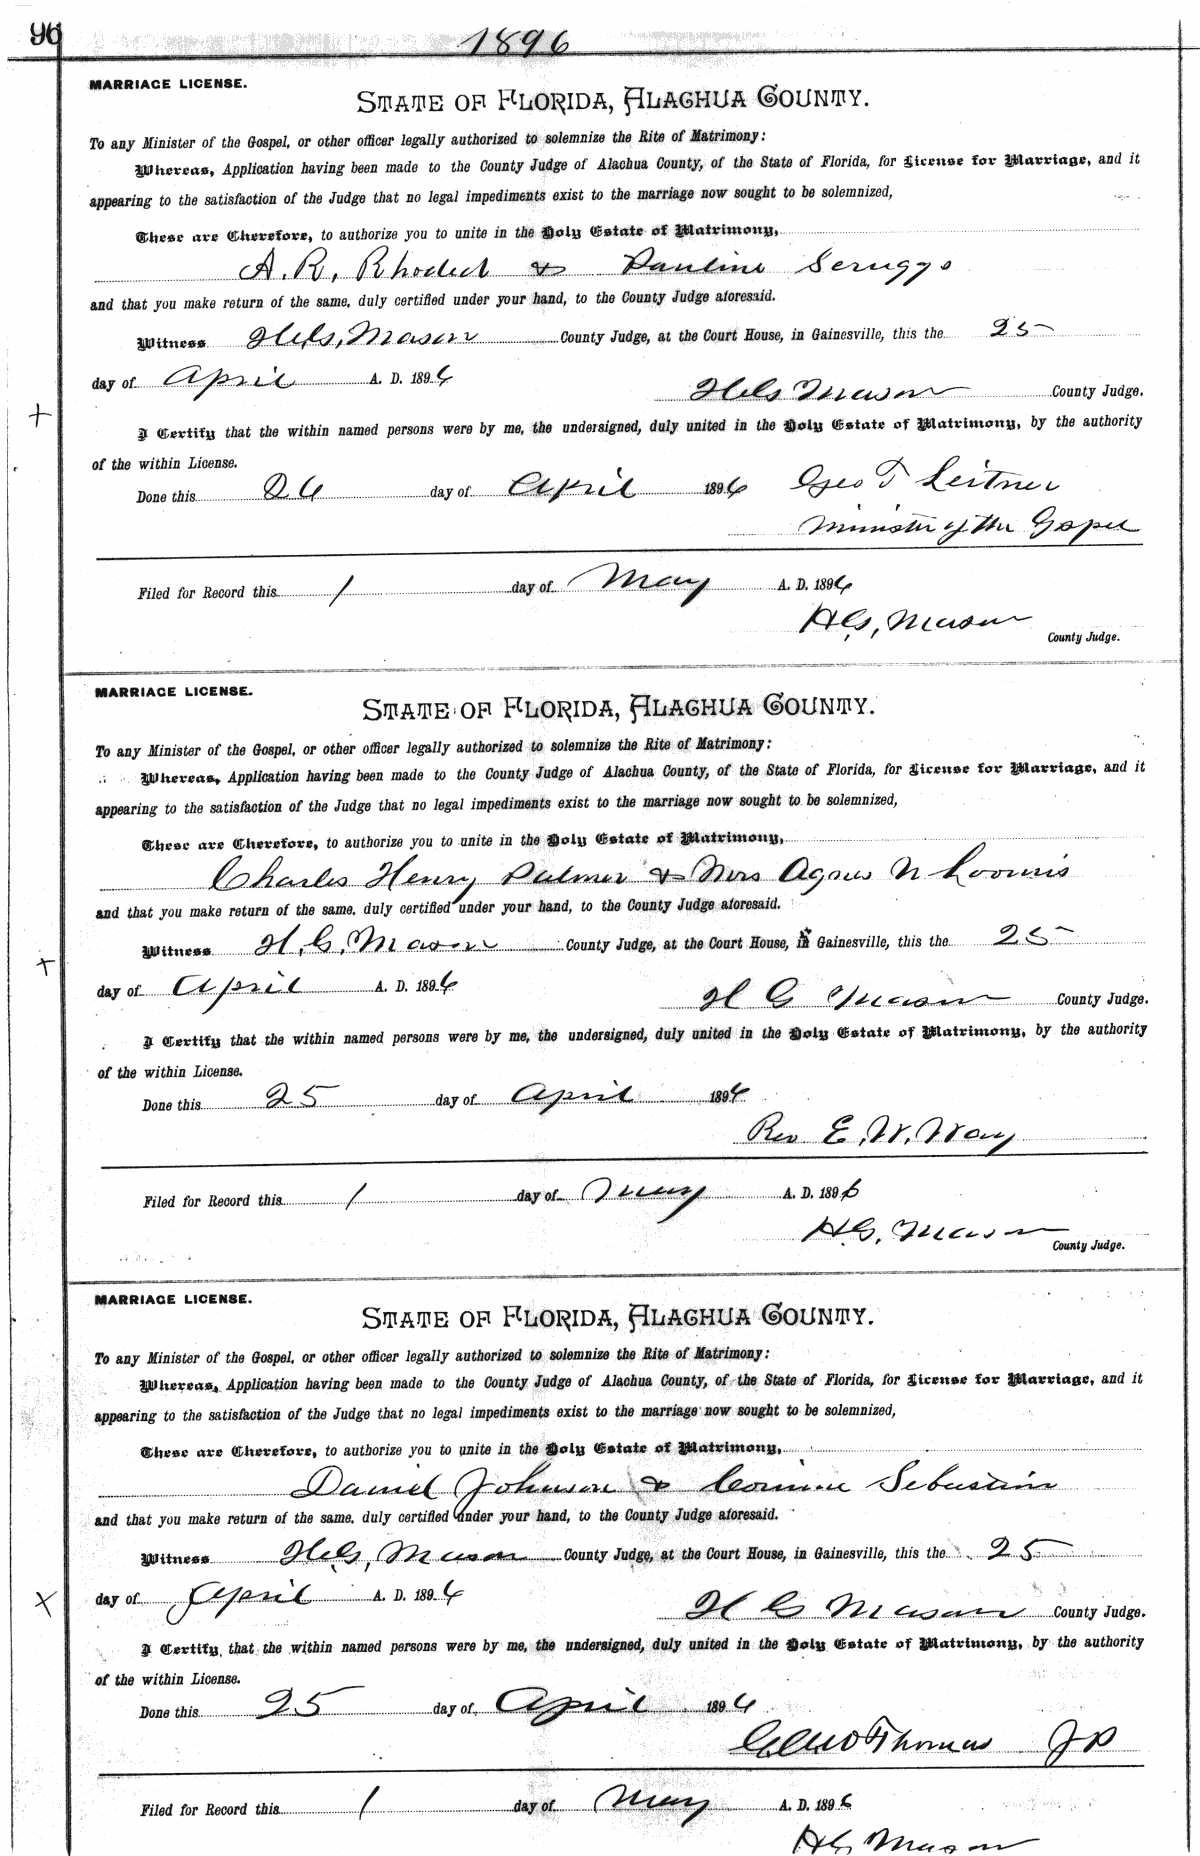 96
1896
MARRIAGE LICENSE.
STATE OF FLORIDA, ALACHUA COUNTY.
To any Minister of the Gospel, or other officer legally authorized to solemnize the Rite of Matrimony:
Whereas, Application having been made to the County Judge of Alachua County, of the State of Florida, for License for Marriage, and it
appearing to the satisfaction of the Judge that no legal impediments exist to the marriage now sought to be solemnized,
These are Therefore, to authorize you to unite in the Holy Estate of Matrimony,
A. R, & Pauline Scruggs
and that you make return of the same, duly certified under your hand, to the County Judge aforesaid.
Witness H.G. Mason County Judge, at the Court House, in Gainesville, this the 25
day of April A. D. 1896
H G Mason County Judge.
I Certify that the within named persons were by me, the undersigned, duly united in the Holy Estate of Matrimony, by the authority
of the within License.
Done this 26 day of April 1896 Geo T Leitner
Minister of the Gospel
Filed for Record this 1 day of May A. D. 1896
H.G, Mason
County Judge.
MARRIAGE LICENSE.
STATE OF FLORIDA, ALACHUA COUNTY.
To any Minister of the Gospel, or other officer legally authorized to solemnize the Rite of Matrimony:
Whereas, Application having been made to the County Judge of Alachua County, of the State of Florida, for License for Marriage, and it
appearing to the satisfaction of the Judge that no legal impediments exist to the marriage now sought to be solemnized,
These are Therefore, to authorize you to unite in the Holy Estate of Matrimony,
Charles Henry Palmer & Mrs Agnes N Loomis
and that you make return of the same, duly certified under your hand, to the County Judge aforesaid.
Witness H.G. Mason County Judge, at the Court House, in Gainesville, this the 25
day of April A. D. 1896
H G Mason County Judge.
I Certify that the within named persons were by me, the undersigned, duly united in the Holy Estate of Matrimony, by the authority
of the within License.
Done this 25 day of April 1896
Rev E. W. Way
Filed for Record this 1 day of May A. D. 1896
H.G. Mason
County Judge.
MARRIAGE LICENSE.
STATE OF FLORIDA, ALACHUA COUNTY.
To any Minister of the Gospel, or other officer legally authorized to solemnize the Rite of Matrimony:
Whereas, Application having been made to the County Judge of Alachua County, of the State of Florida, for License for Marriage, and it
appearing to the satisfaction of the Judge that no legal impediments exist to the marriage now sought to be solemnized,
These are Therefore, to authorize you to unite in the Holy Estate of Matrimony,
Daniel Johnson & Corinne Sebastin
and that you make return of the same, duly certified under your hand, to the County Judge aforesaid.
Witness H.G, Mason County Judge, at the Court House, in Gainesville, this the 25
day of April A. D. 1896
H G Mason County Judge.
I Certify, that the within named persons were by me, the undersigned, duly united in the Holy Estate of Matrimony, by the authority
of the within License.
Done this 25 day of April 1896
Thomas JP
Filed for Record this 1 day of May A. D. 1896
H G Mason